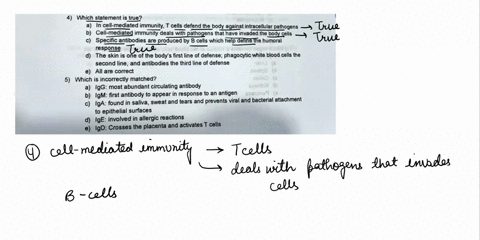 4) Which statement is true?
a) In cell-mediated immunity, T cells defend the body against intracellular pathogens → True
b) Cell-mediated immunity deals with pathogens that have invaded the body cells → True
c) Specific antibodies are produced by B cells which help define the humoral
response True
d) The skin is one of the body's first line of defense; phagocytic white blood cells the
second line, and antibodies the third line of defense
e) All are correct
5) Which is incorrectly matched?
a) IgG: most abundant circulating antibody
b) IgM: first antibody to appear in response to an antigen
c) IgA: found in saliva, sweat and tears and prevents viral and bacterial attachment
to epithelial surfaces
d) IgE: involved in allergic reactions
e) IgD: Crosses the placenta and activates T cells
4 cell-mediated immunity → T cells
↳ deals with pathogens that invades
cells
B-cells